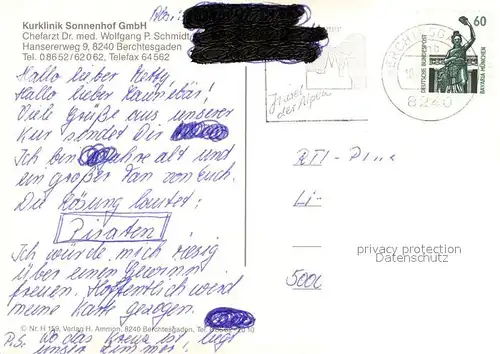 Kurklinik Sonnenhof GmbH
Chefarzt Dr. med. Wolfgang P. Schmidt
Hansererweg 9, 8240 Berchtesgaden
Tel. 08652/62062, Telefax 64562
Abs.:
Hallo lieber
Hallo lieber
Viele Grüße aus unserer
Kur sendet Dir
Ich bin Jahre alt und
ein großer Fan von Euch.
Die Lösung lautet:
Piraten
Ich würde mich riesig
über einen Gewinn
freuen. Hoffentlich wird
meine Karte gezogen.
© Nr. H 159, Verlag H. Ammon, 8240 Berchtesgaden, Tel.
P.S. Wo das Kreuz ist liegt
unser Zimmer!
der Alpen
BERCHTESGADEN
8240
60
DEUTSCHE BUNDESPOST
BAVARIA MÜNCHEN
RTL-
privacy protection
Datenschutz